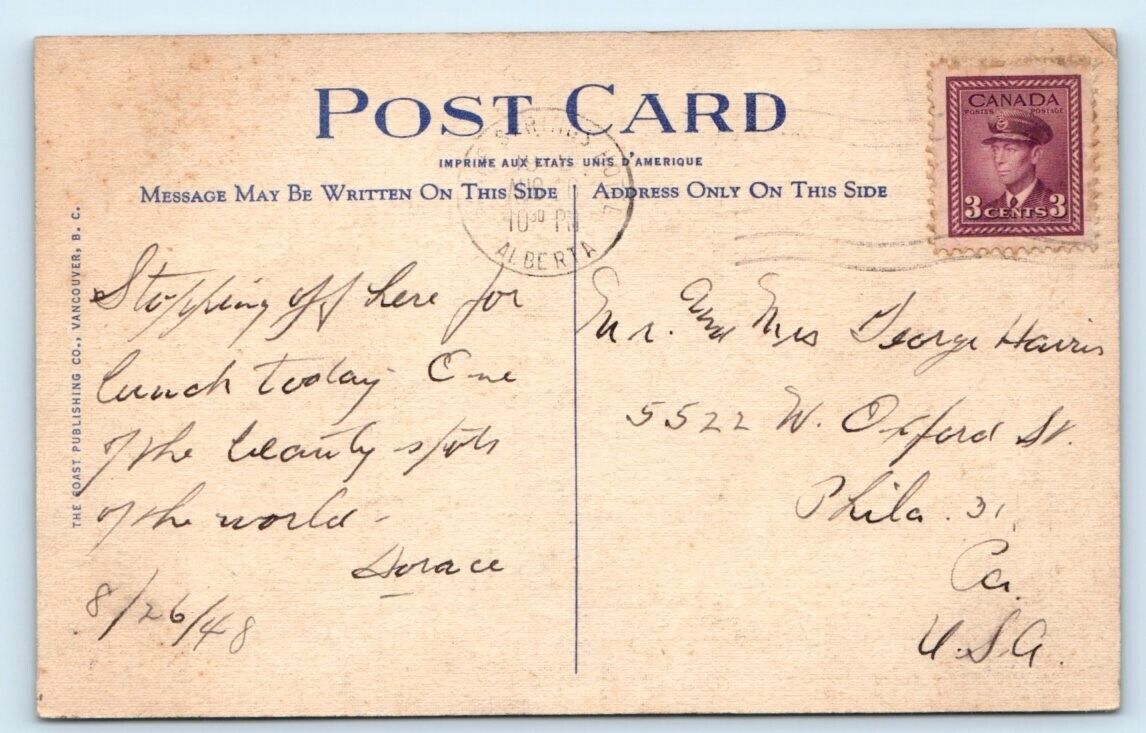 POST CARD
IMPRIME AUX ETATS UNIS D'AMERIQUE
MESSAGE MAY BE WRITTEN ON THIS SIDE
ADDRESS ONLY ON THIS SIDE
CANADA
POSTES POSTAGE
3 CENTS 3
AUG
10 30 PM
ALBERTA
THE COAST PUBLISHING CO., VANCOUVER, B. C.
Stopping off here for
lunch today One
of the beauty spots
of the world -
Horace
8/26/48
Mr. and Mrs George Harris
5522 W. Oxford St.
Phila. 31,
Pa.
U.S.A.